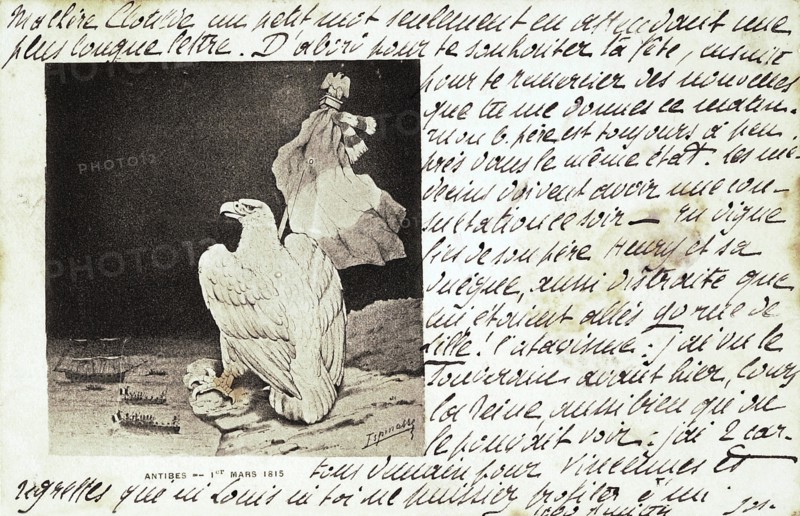 Ma chère Clotilde un petit mot seulement en attendant une
plus longue lettre. D'abord pour te souhaiter ta fête, ensuite
pour te remercier des nouvelles
que tu me donnes ce matin.
mon b. père est toujours à peu
près dans le même état. les mé-
decins doivent avoir une con-
sultation ce soir —
lui de son père Henry et sa
aussi distraite que
étaient allés 90 rue de
Lille! l'atavisme! j'ai vu le
Souverain avant hier,
la Reine, aussi bien qu'on
le pouvait voir. j'ai 2 car-
tons demain pour Vincennes et
regrettes que ni Louis ni toi ne puissiez profiter
PHOTO12
PHOTO12
PHOTO12
PHOTO12
Espinasse
ANTIBES -- 1er MARS 1815